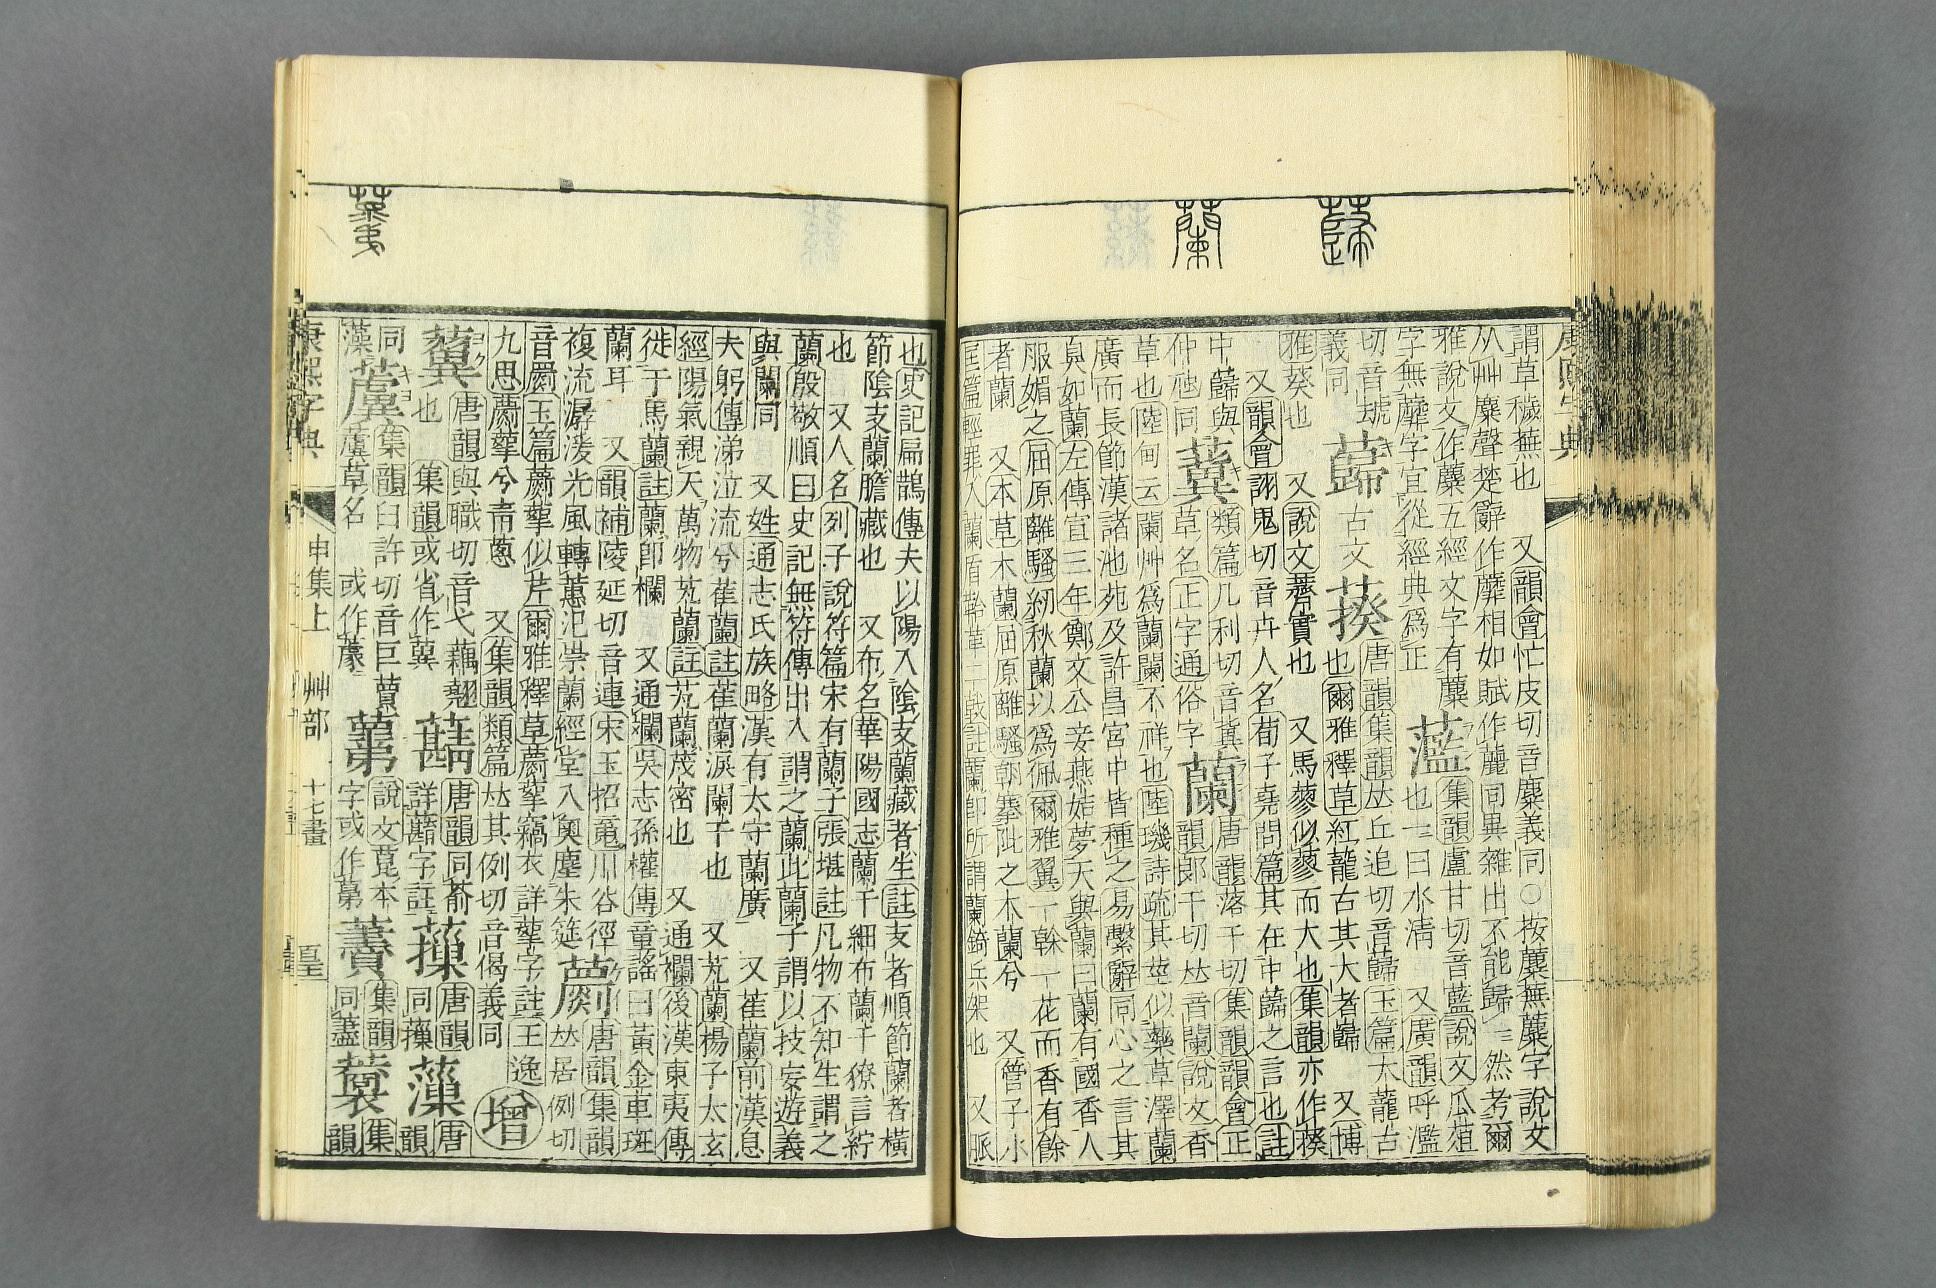 謂草穢蕪也 又韻會忙皮切音麋義同○按蘪蕪蘪字說文
从艸麋聲楚辭作蘼相如賦作蘪同異雜出不能歸一然考爾
雅說文作蘪五經文字有蘪
字無蘼字宜從經典爲正
藍
集韻盧甘切音藍說文瓜菹
也一曰水清 又廣韻呼濫
切音㘎義同
蘬
古文
葵
唐韻集韻𠀤丘追切音蘬玉篇大龍古
也爾雅釋草紅蘢古其大者蘬 又博
雅葵也 又說文薺實也 又馬蓼似蓼而大也集韻亦作葵
又韻會詡鬼切音卉人名荀子堯問篇其在中蘬之言也註
中蘬與
仲虺同
類篇几利切音冀
草名正字通俗字
蘭
唐韻落干切集韻韻會正
韻郞干切𠀤音闌說文香
草也陸佃云闌艸爲蘭闌不祥也陸璣詩疏其莖似藥草澤蘭
廣而長節漢諸池苑及許昌宮中皆種之易繫辭同心之言其
臭如蘭左傳宣三年鄭文公妾燕姞夢天與蘭曰蘭有國香人
服媚之屈原離騷紉秋蘭以爲佩爾雅翼一榦一花而香有餘
者蘭 又木草木蘭屈原離騷朝搴阰之木蘭兮 又管子小
匡篇輕罪入蘭盾鞈革二戟註蘭卽所謂蘭錡兵架也 又脈
也史記扁鵲傳夫以陽入陰支蘭藏者生註支者順節蘭者橫
節陰支蘭膽藏也 又布名華陽國志蘭干細布蘭干獠言紵
也 又人名列子說符篇宋有蘭子張堪註凡物不知生謂之
蘭殷敬順曰史記無符傳出入謂之蘭此蘭子謂以技妄遊義
與闌同 又姓通志氏族略漢有太守蘭廣 又萑蘭前漢息
夫躬傳涕泣流兮萑蘭註萑蘭淚闌干也 又艽蘭楊子太玄
經陽氣親天萬物艽蘭註艽蘭茂密也 又通欄後漢東夷傳
徙于馬蘭註蘭卽欄 又通斕吳志孫權傳童謠曰黃金車班
蘭耳 又韻補陵延切音連宋玉招䰟川谷徑
複流潺湲光風轉蕙汜崇蘭經堂入奧塵朱筵
藅
唐韻集韻
𠀤居例切
音罽玉篇藅挐似芹爾雅釋草藅挐竊衣詳挐字註王逸
九思藅蕠兮靑蔥 又集韻類篇𠀤其例切音偈義同
增
唐韻與職切音弋藕翹
也 集韻或省作䔬
唐韻同蕱
詳蕱字註
唐韻
同藻
唐
韻
同
藻
集韻臼許切音巨藚
草名 或作蘧
說文萖本
字或作第
集韻
同藎
集
韻
康熙字典
申集上 艸部 十七畫